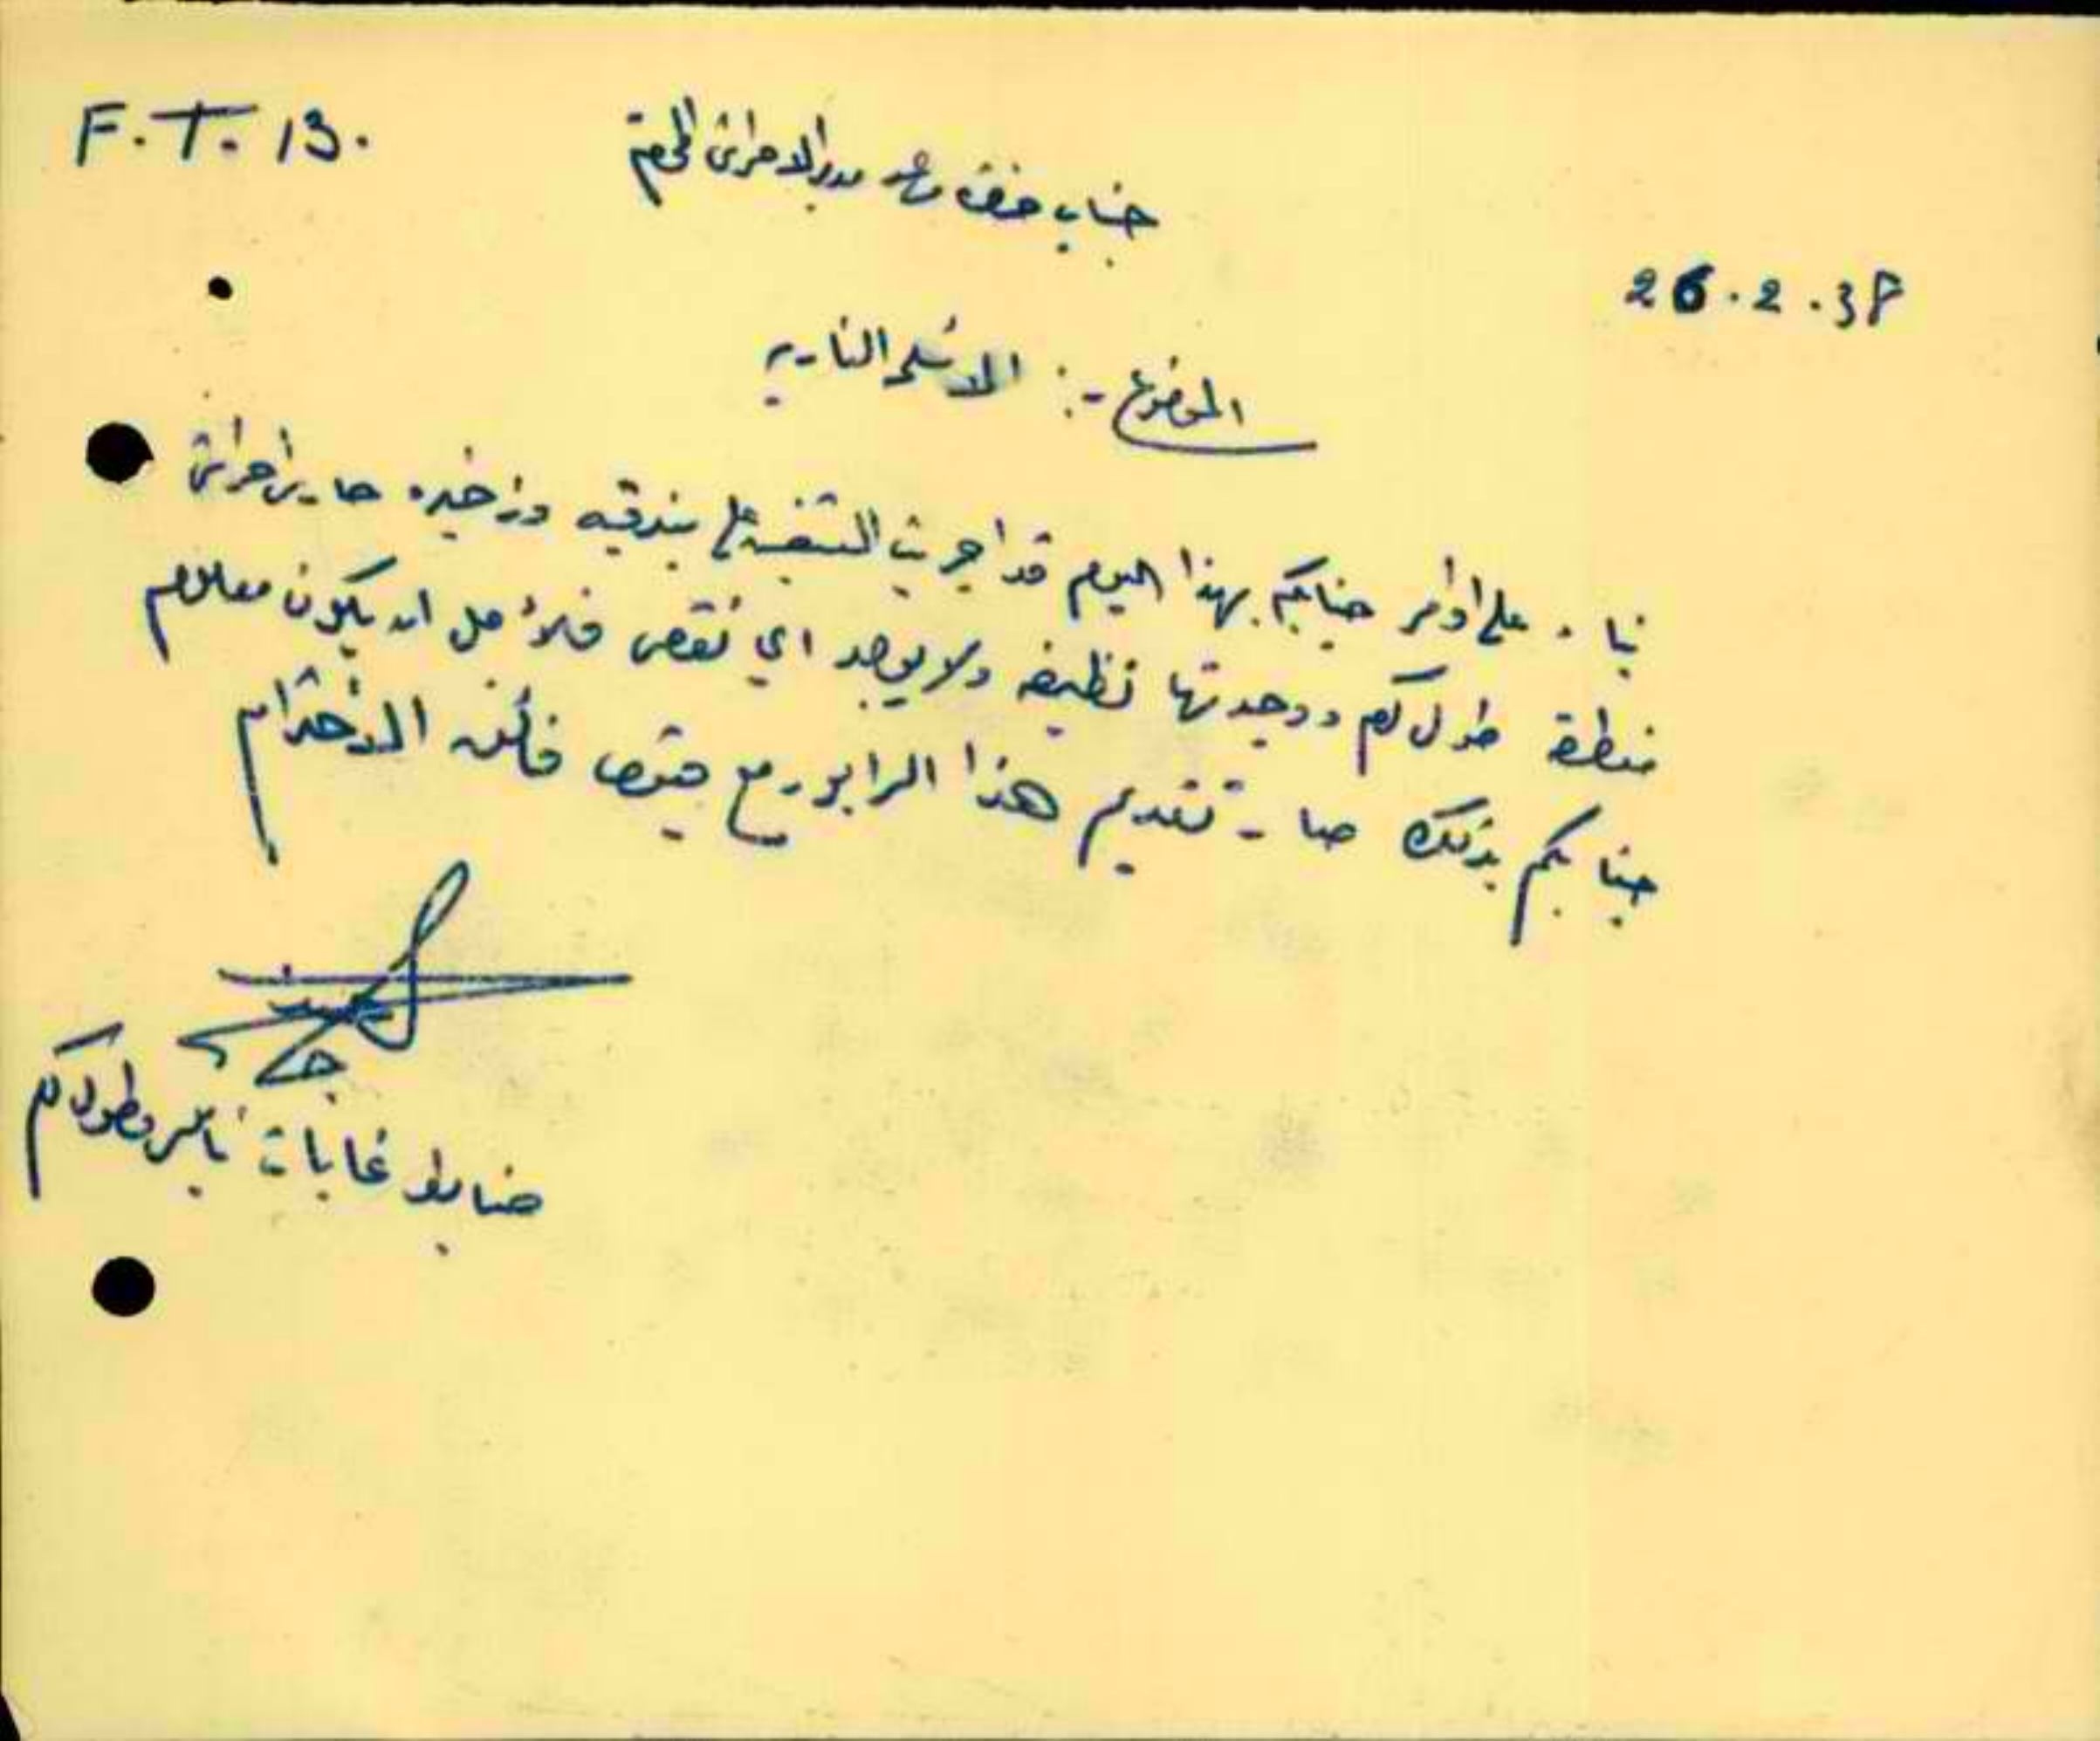 F. T. 13.
جناب حضرة مساعد مدير الاحراش المحترم
26.2.38
الموضوع :- الاسلحه الناريه
بناء على اوامر جنابكم بهذا اليوم قد اجريت التفتيش على بندقيه وذخيره حارس احراش
منطقة طولكرم ووجدتها نظيفه ولا يوجد اي نقص فلأجل ان يكون معلوم
جنابكم بذلك صار تقديم هذا الرابور مع فائق الاحترام
ضابط غابات نابلس وطولكرم